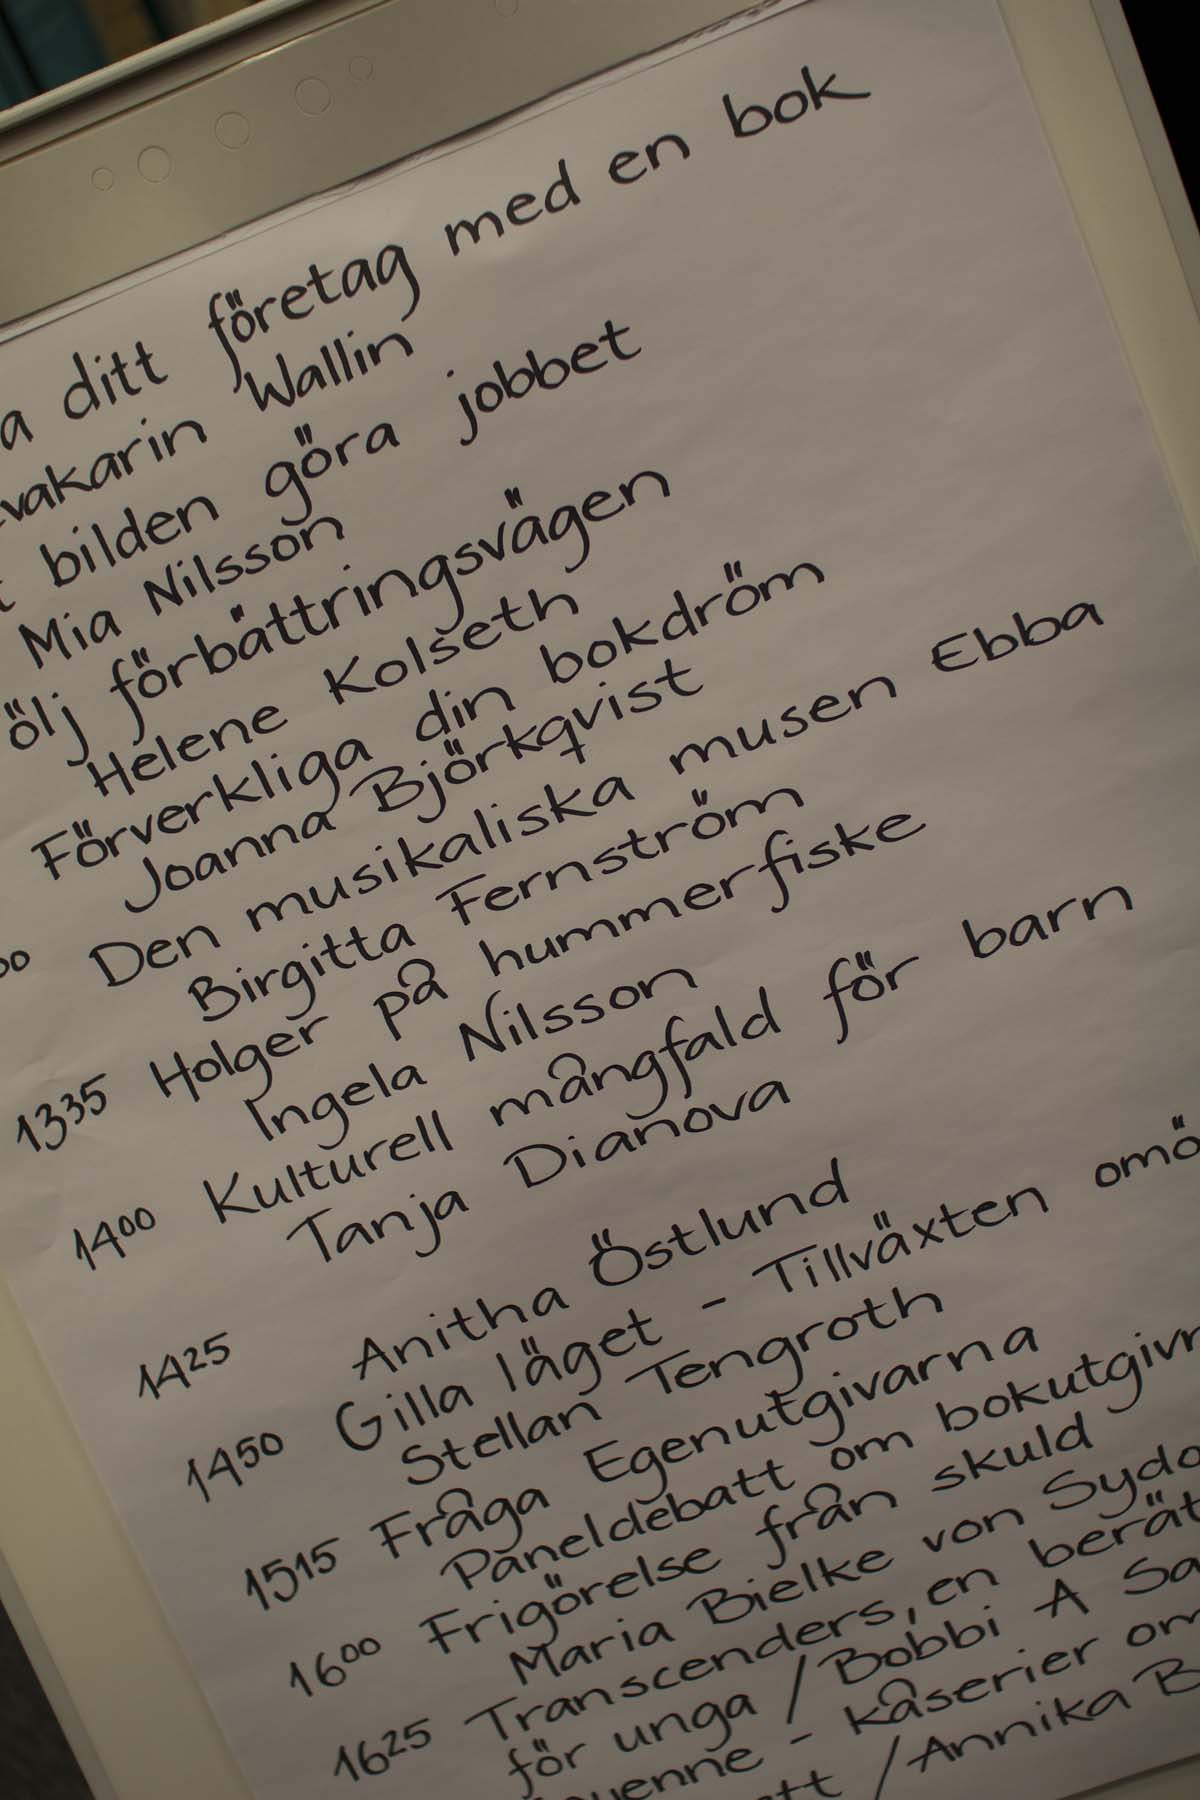 a ditt företag med en bok
vakarin Wallin
bilden göra jobbet
Mia Nilsson
ölj förbättringsvägen
Helene Kolseth
Förverkliga din bokdröm
Joanna Björkqvist
00 Den musikaliska musen Ebba
Birgitta Fernström
1335 Holger på hummerfiske
Ingela Nilsson
1400 Kulturell mångfald för barn
Tanja Dianova
1425 Anitha Östlund
1450 Gilla läget - Tillväxten omö
Stellan Tengroth
1515 Fråga Egenutgivarna
Paneldebatt om bokutgivn
1600 Frigörelse från skuld
Maria Bielke von Sydo
1625 Transcenders, en berät
för unga / Bobbi A Sa
yenne - kåserier om
tt / Annika B